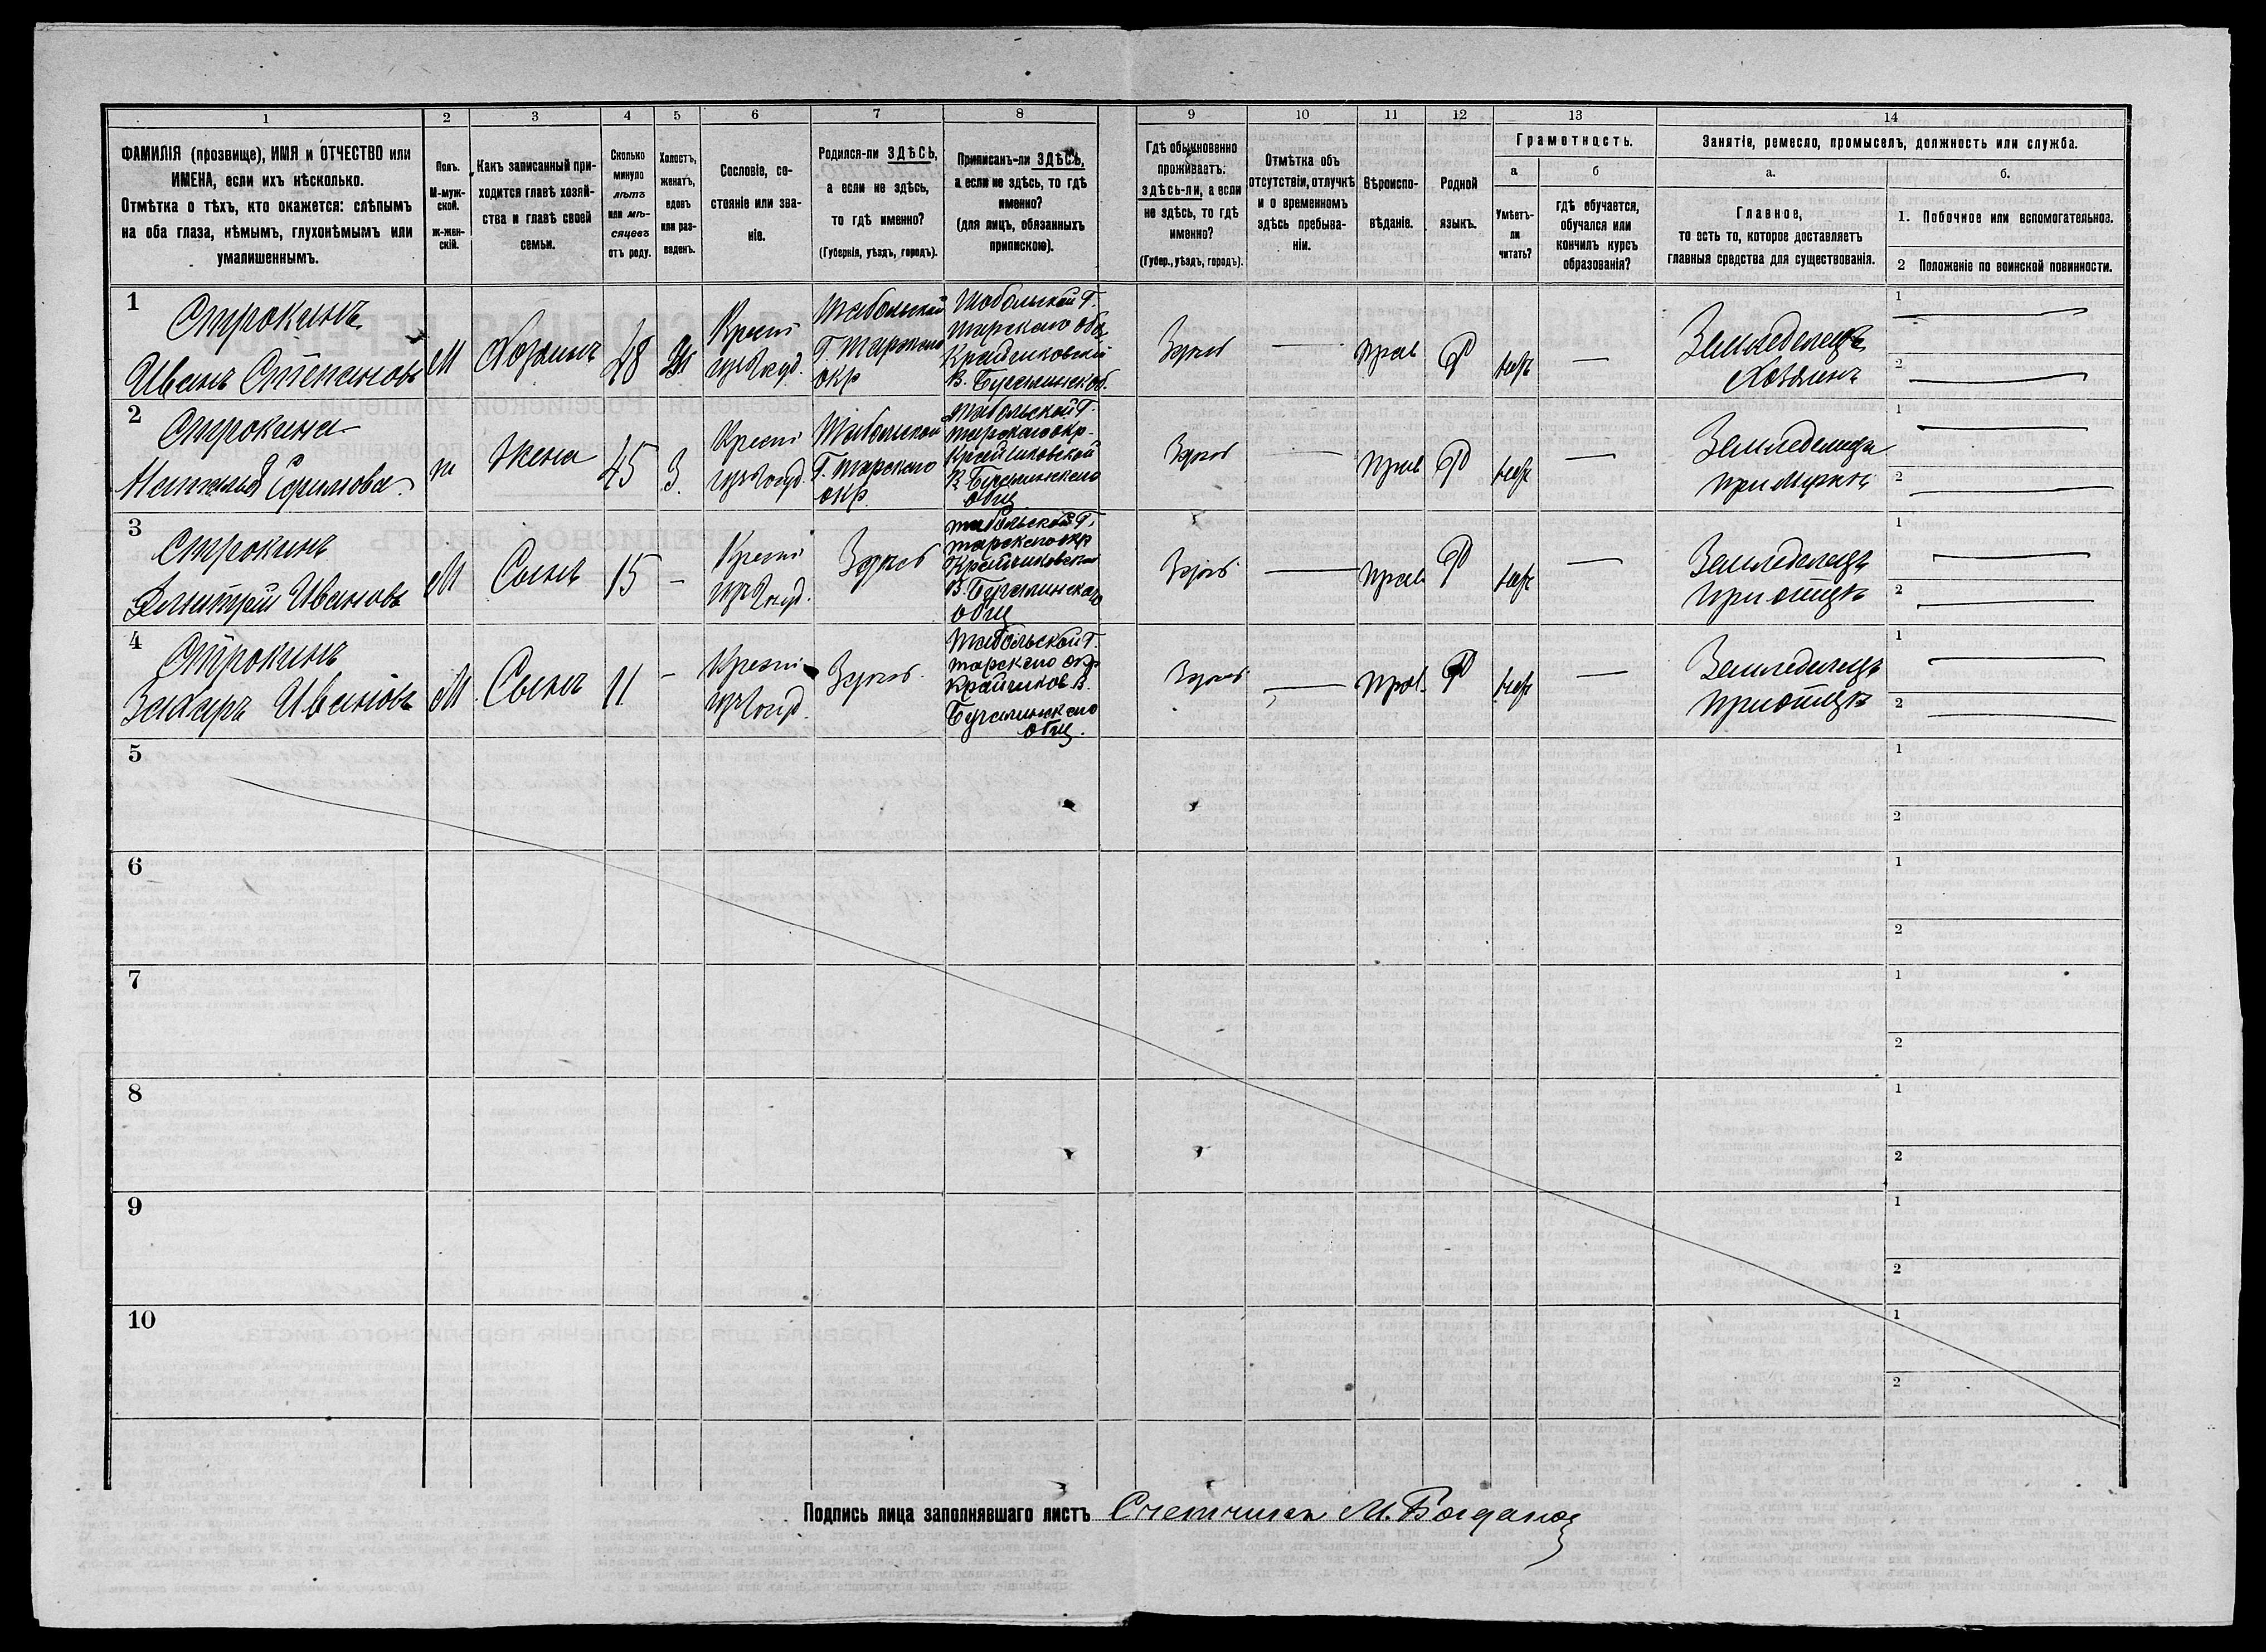 1 2 3 4 5 6 7 8 9 10 11 12 13 14
ФАМИЛІЯ (прозвище), ИМЯ и ОТЧЕСТВО или
ИМЕНА, если ихъ нѣсколько.
Отмѣтка о тѣхъ, кто окажется: слѣпымъ
на оба глаза, нѣмымъ, глухонѣмымъ или
умалишеннымъ.
Полъ.
М-муж-
ской.
ж-жен-
скій.
Какъ записанный при-
ходится главѣ хозяй-
ства и главѣ своей
семьи.
Сколько
минуло
лѣтъ
или мѣ-
сяцевъ
отъ роду.
Холостъ,
женатъ,
вдовъ
или раз-
веденъ.
Сословіе, со-
стояніе или зва-
ніе.
Родился-ли ЗДѢСЬ,
а если не здѣсь,
то гдѣ именно?
(Губернія, уѣздъ, городъ).
Приписанъ-ли ЗДѢСЬ,
а если не здѣсь, то гдѣ
именно?
(для лицъ, обязанныхъ
припискою).
Гдѣ обыкновенно
проживаетъ:
здѣсь-ли, а если
не здѣсь, то гдѣ
именно?
(Губер., уѣздъ, городъ).
Отмѣтка объ
отсутствіи, отлучкѣ
и о временномъ
здѣсь пребыва-
ніи.
Вѣроиспо-
вѣданіе.
Родной
языкъ.
Грамотность.
а
Умѣетъ-
ли
читать?
б
гдѣ обучается,
обучался или
кончилъ курсъ
образованія?
Занятіе, ремесло, промыселъ, должность или служба.
а.
Главное,
то есть то, которое доставляетъ
главныя средства для существованія.
б.
1. Побочное или вспомогательное.
2 Положеніе по воинской повинности.
1
Строкинъ
Иванъ Степановъ
М
Хозяинъ
48
Ж
Крест
изъ госуд.
Тобольской
Г. Тарскаго
окр
Тобольской Г.
Тарскаго окр.
Крайчиковской
В. Бугалинск об.
Здѣсь
—
прав
Р
нѣтъ
—
Земледелецъ
Хозяинъ
1
2
2
Строкина
Наталья Ефимова
ж
Жена
45
З.
Крест
изъ госуд.
Тобольской
Г. Тарскаго
окр.
Тобольской Г.
Тарскаго окр.
Крайчиковской
В. Бугалинскаго
общ
Здѣсь
прав
Р
нѣтъ
—
Земледелецъ
при мужѣ
1
2
3
Строкинъ
Дмитрій Ивановъ
М
Сынъ
15
—
Крест
изъ госуд.
Здѣсь
Тобольской Г.
Тарскаго окр
Крайчиковской
В. Бугалинскаго
общ
Здѣсь
—
прав
Р
нѣтъ
—
Земледелецъ
при отцѣ
1
2
4
Строкинъ
Захаръ Ивановъ
М
Сынъ
11
—
Крест
изъ госуд.
Здѣсь
Тобольской Г.
Тарскаго окр
Крайчиков. В.
Бугалинскаго
общ.
Здѣсь
—
прав.
Р
нѣтъ
—
Земледелецъ
при отцѣ
1
2
5
1
2
6
1
2
7
1
2
8
1
2
9
1
2
10
1
2
Подпись лица заполнявшаго листъ Счетчикъ М. Богданов